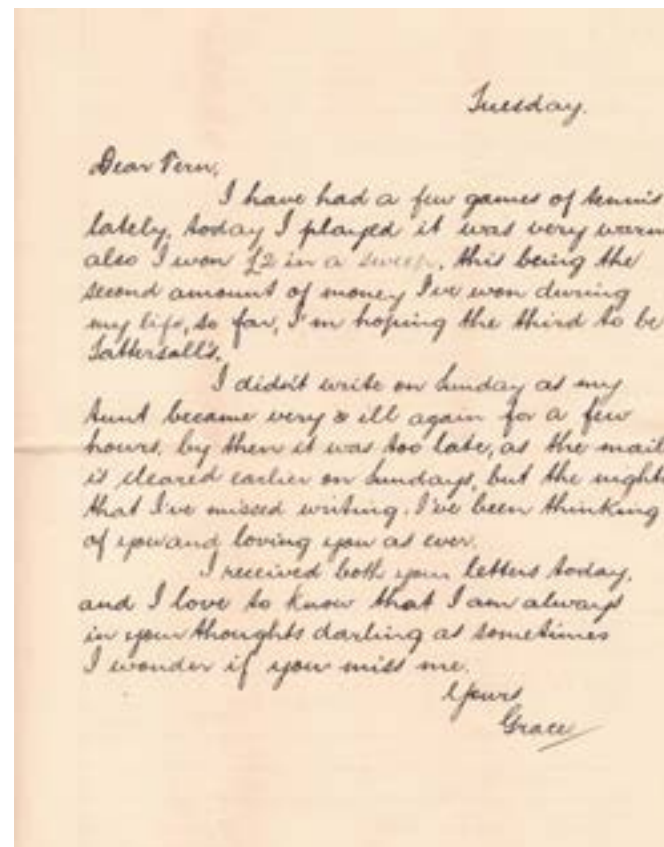 Tuesday.
Dear Vern,
I have had a few games of tennis
lately, today I played it was very warm
also I won £2 in a sweep, this being the
second amount of money I've won during
my life, so far, I'm hoping the third to be
Tattersall's.
I didn't write on Sunday as my
Aunt became very ill again for a few
hours, by then it was too late, as the mail
is cleared earlier on Sundays, but the nights
that I've missed writing, I've been thinking
of you and loving you as ever.
I received both your letters today,
and I love to know that I am always
in your thoughts darling as sometimes
I wonder if you miss me.
Yours
Grace